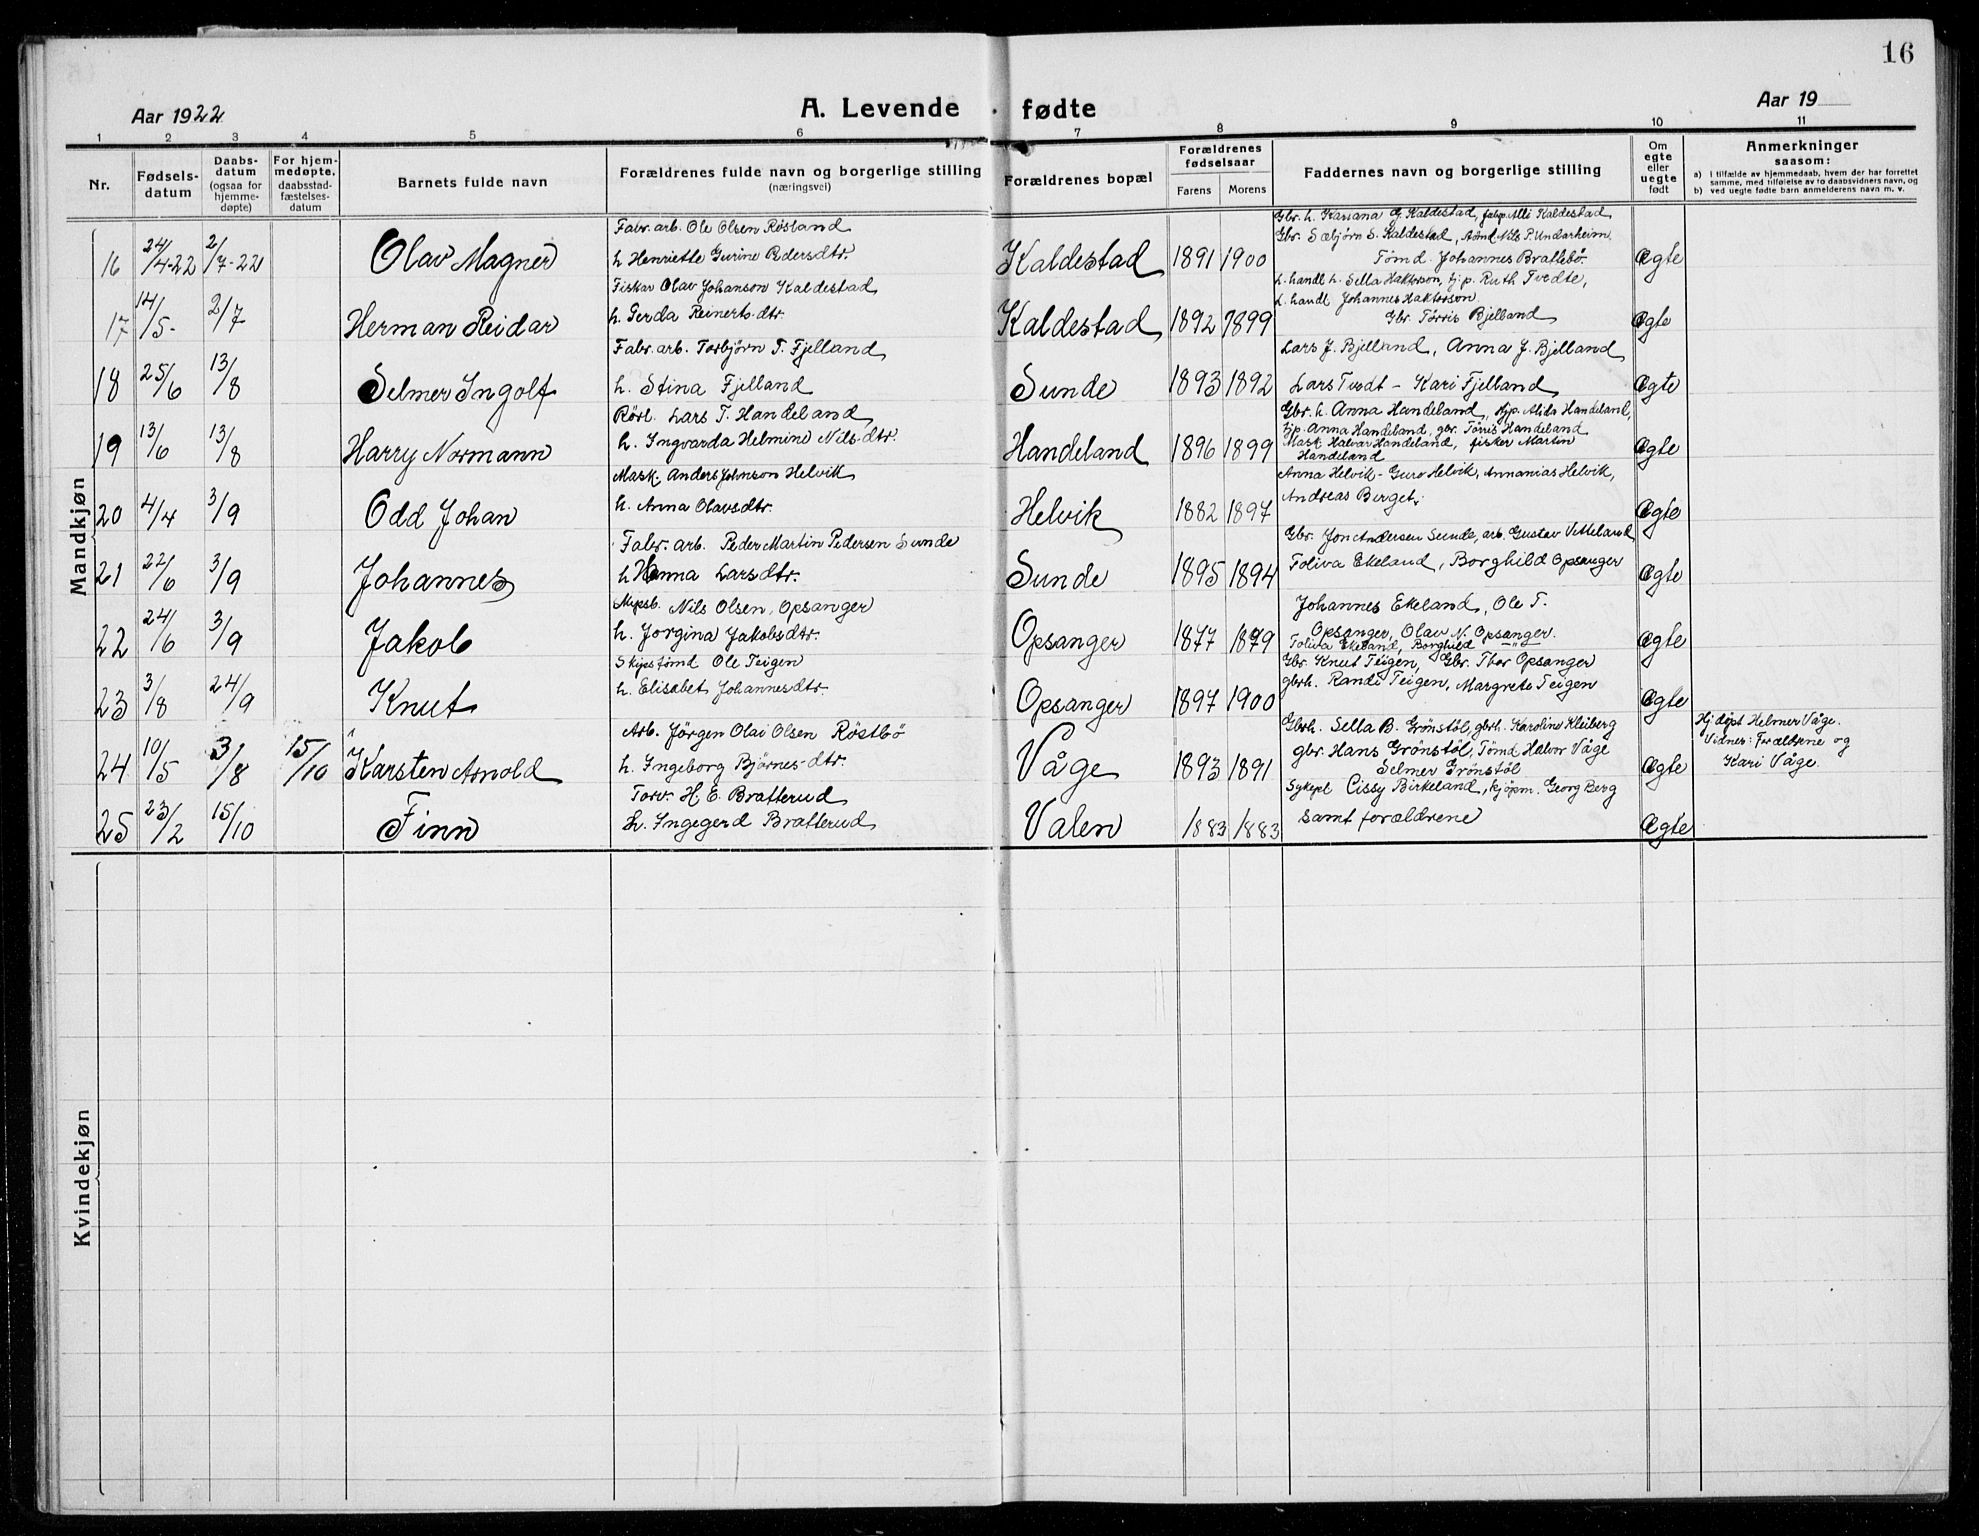 16
Aar 1922
A. Levende fødte
Aar 19
1 2 3 4 5 6 7 8 9 10 11
Nr.
Fødsels-
datum
Daabs-
datum
(ogsaa for
hjemme-
døpte)
For hjem-
medøpte,
daabsstad-
fæstelses-
datum
Barnets fulde navn
Forældrenes fulde navn og borgerlige stilling
(næringsvei)
Forældrenes bopæl
Forældrenes
fødselsaar
Farens Morens
Faddernes navn og borgerlige stilling
Om
egte
eller
uegte
født
Anmerkninger
saasom:
a) i tilfælde av hjemmedaab, hvem der har forrettet
samme, med tilføielse av to daabsvidners navn, og
b) ved uegte fødte barn anmelderens navn m. v.
Mandkjøn
16 24/4-22 2/7-22 Olav Magner
Fabr. arb. Ole Olsen Røsland
h. Henriette Gurine Pedersdtr.
Kaldestad 1891 1900
Gbr. h. Kariana G. Kaldestad, fabrp. Alli Kaldestad
Gbr. Sæbjörn S. Kaldestad, Tömd Nils P. Undarheim.
Tömd. Johannes Brattebö.
Egte
17 14/5- 2/7 Herman Reidar
Fiskar Olav Johanson Kaldestad
h. Gerda Reinertsdtr.
Kaldestad 1892 1899
L. handl. h. Sella Haktorson, tj. p. Ruth Tvedte,
L. handl Johannes Haktorson
Gbr. Törris Bjelland
Egte
18 25/6 13/8 Selmer Ingolf
Fabr. arb. Torbjørn T. Fjelland
h. Stina Fjelland
Sunde 1893 1892
Lars J. Bjelland, Anna J. Bjelland
Lars Tvedt - Kari Fjelland
Egte
19 13/6 13/8 Harry Normann
Rörl. Lars T. Handeland
h. Ingvarda Helmine Nilsdtr.
Handeland 1896 1899
Gbr. h. Anna Handeland, tjp. Alida Handeland,
tjp. Anna Handeland, gbr. Törris Handeland
Mask. Halvar Handeland, fisker Martin
Handeland
Egte
20 4/4 3/9 Odd Johan
Mask. Anders Johnson Helvik
h. Anna Olavsdtr.
Helvik 1882 1897
Anna Helvik - Guro Helvik, Annanias Helvik,
Andreas Berget.
Egte
21 22/6 3/9 Johannes
Fabr. arb. Peder Martin Pedersen Sunde
h. Hanna Larsdtr.
Sunde 1895 1894
Gbr. Jon Andersen Sunde, arb. Gustav Vetteland
Toliva Ekeland, Borghild Opsanger
Egte
22 24/6 3/9 Jakob
Nils Olsen, Opsanger
h. Jorgina Jakobsdtr.
Opsanger 1877 1879
Johannes Ekeland, Ole T.
Opsanger, Olav N. Opsanger.
Toliva Ekeland, Borghild —"—
Egte
23 3/8 24/9 Knut
Skipstömd Ole Teigen
h. Elisabet Johannesdtr.
Opsanger 1897 1900
Gbr. Knut Teigen, Gbr. Thor Opsanger
gbrh. Randi Teigen, Margrete Teigen
Egte
24 10/5 3/8 15/10 Karsten Arnold
Arb. Jörgen Olai Olsen Röstbö
h. Ingeborg Bjørnes-dtr.
Våge 1893 1891
Gbrh. Sella B. Grönstöl, gbrh. Karoline Kleiberg
gbr. Hans Grönstöl, Tömd Halvor Våge
Selmer Grönstöl
Egte
Hj. döpt Helmer Våge.
Vidner: Forældrene og
Kari Våge.
25 23/2 15/10 Finn
Torv. H. E. Bratterud
h. Ingegerd Bratterud
Valen 1883 1883
Sykepl Cissy Birkeland, kjöpm. Georg Berg
samt forældrene
Egte
Kvindekjøn